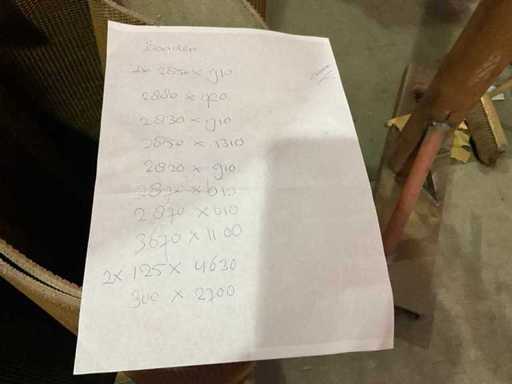 2x 2850 x 910
2880 x 920
2830 x 910
2850 x 1310
2820 x 910
2870 x 610
2870 x 610
3670 x 1100
2x 125 x 4630
300 x 2700